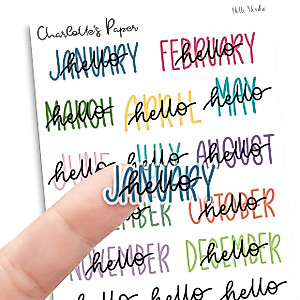 Charlotte's Paper
Hello Months
JANUARY hello FEBRUARY hello
MARCH hello APRIL hello MAY hello
JUNE hello JULY hello AUGUST hello
JANUARY hello
hello OCTOBER hello
NOVEMBER hello DECEMBER hello
hello hello